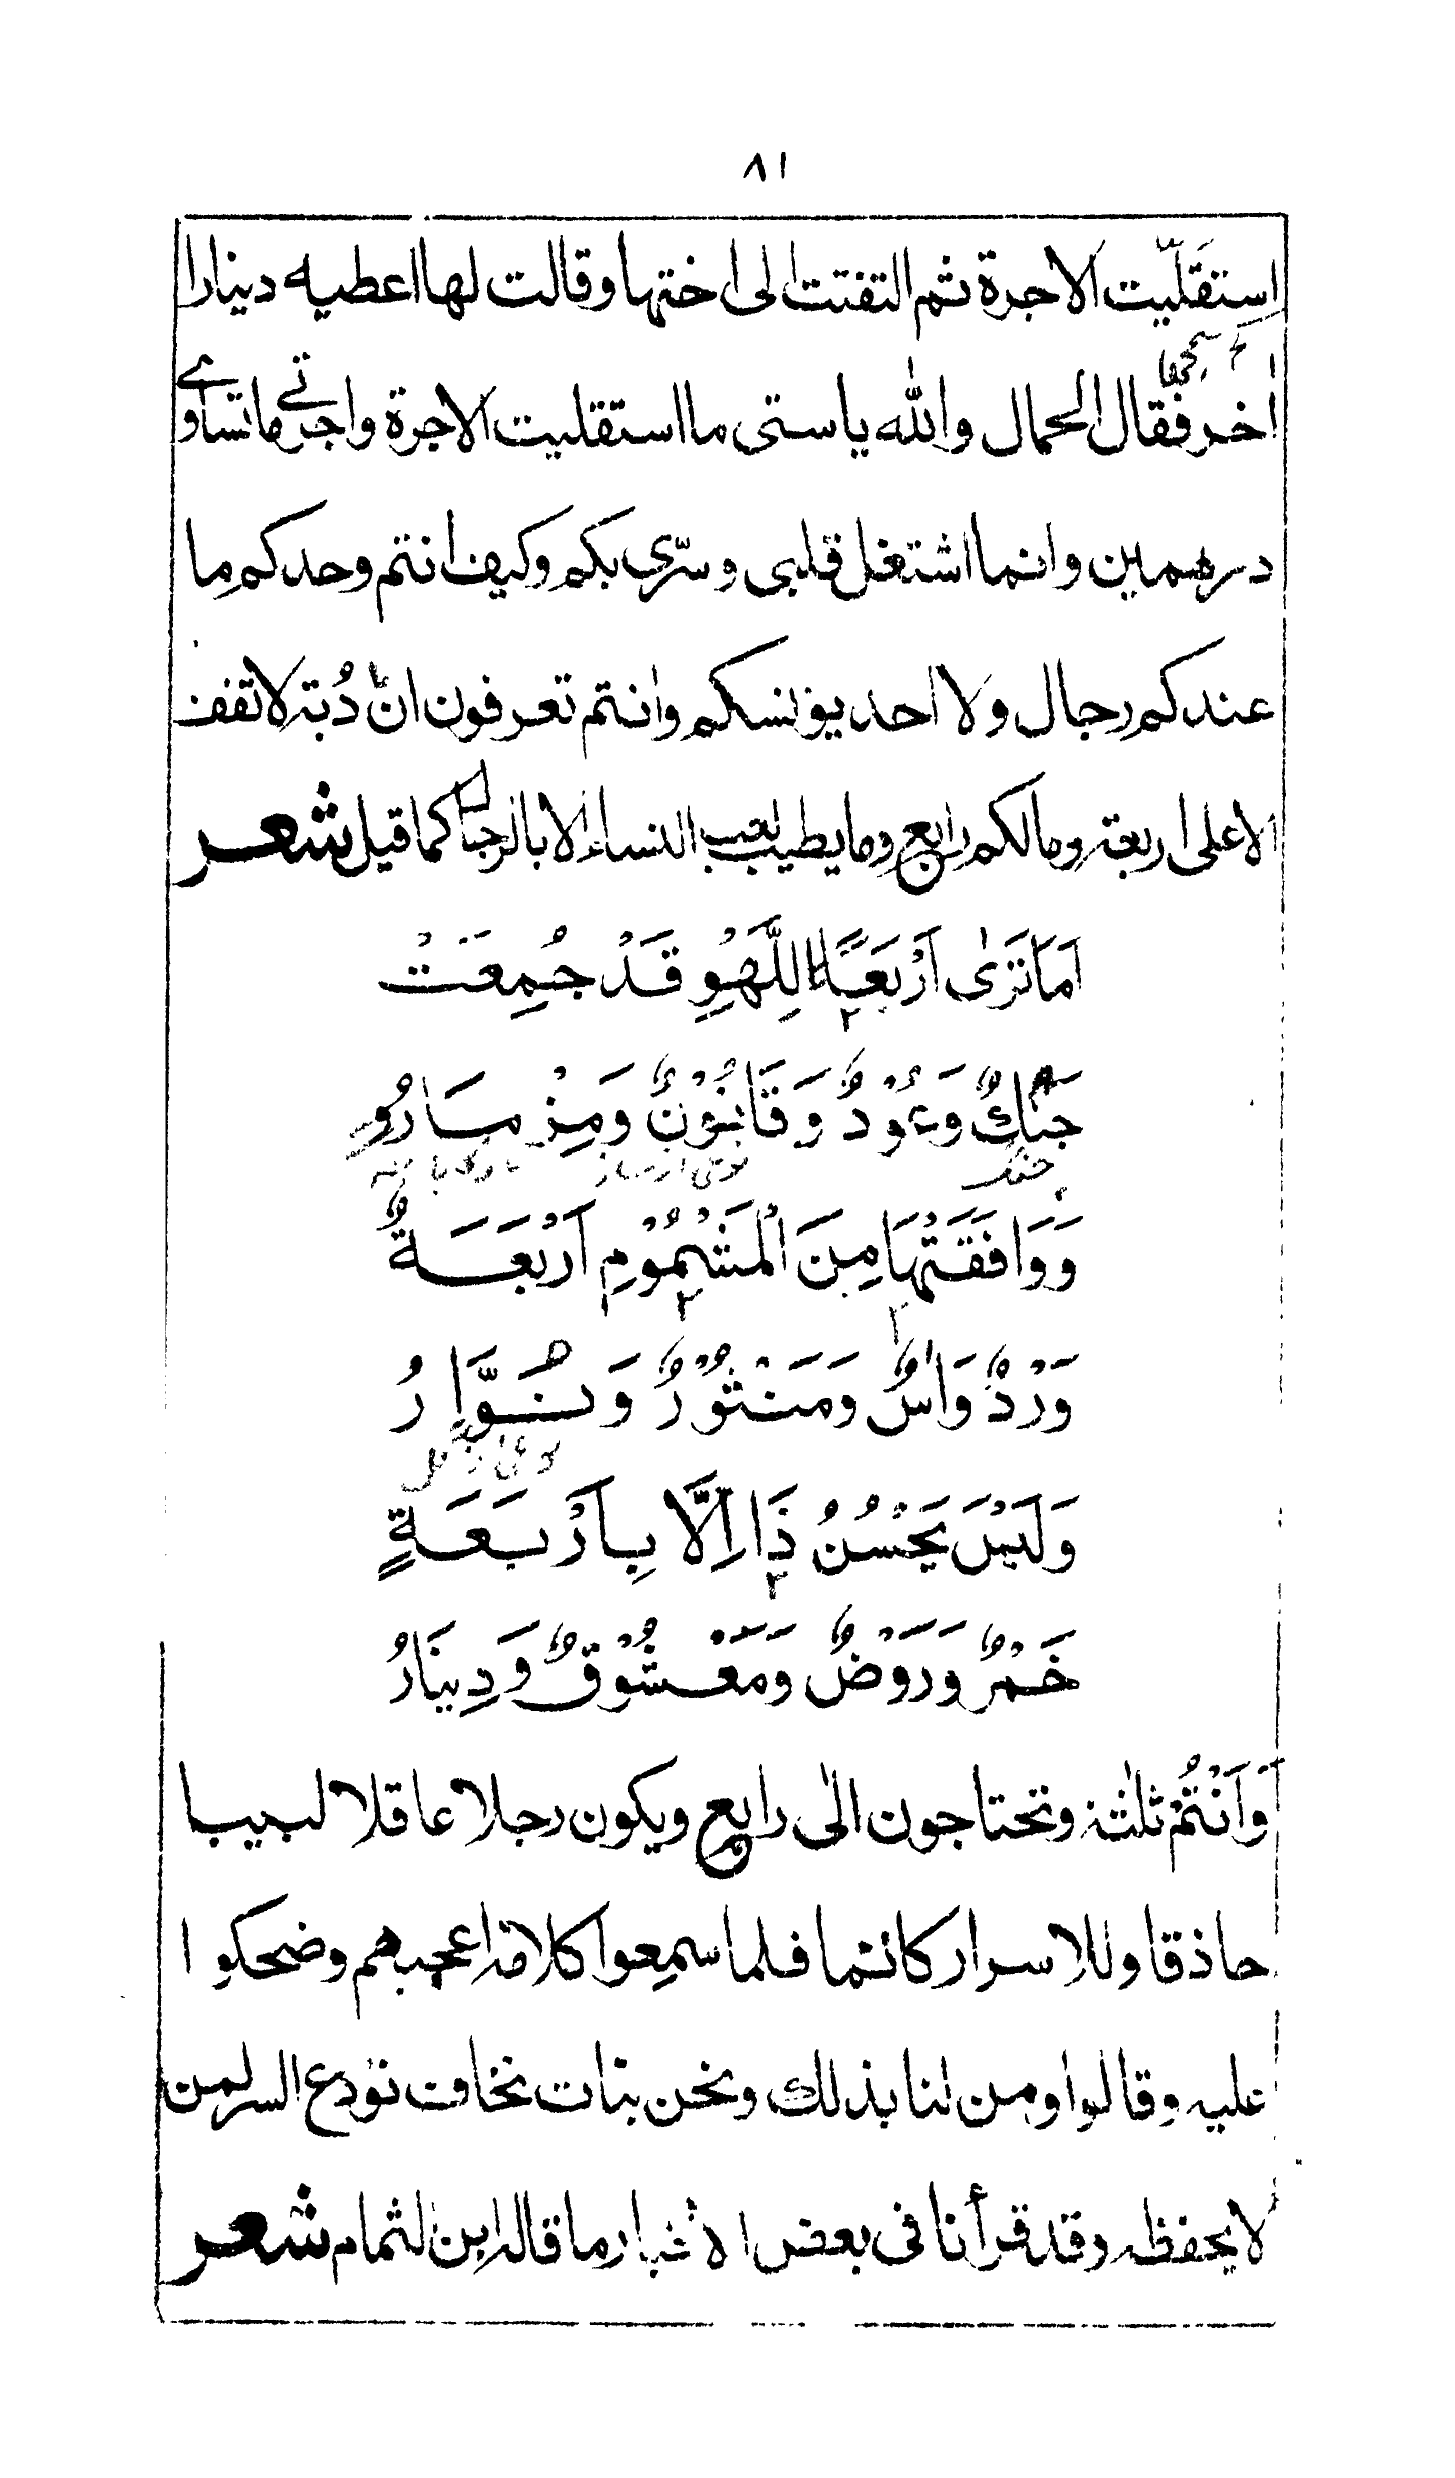 ٨١
استقلّيت الاجرة ثم التفتت الى اختها وقالت لها اعطيه دينارا
اخر فقال الحمال والله ياستى ما استقليت الاجرة واجرتى ماتساوے
درهمين وانما اشتغل قلبى وسرّى بكم وكيف انتم وحدكم ما
عندكم رجال ولا احد يؤنسكم وانتم تعرفون انّ دُبة لا تقف
الا على اربعة ومالكم رابع ومايطيب لعب النساء الا بالرجال كما قيل شعر
اَمَا تَرٰى اَرْبَعًا لِلَّهْوِ قَدْ جُمِعَتْ
جَنْكٌ وَعُوْدٌ وَقَانُوْنٌ وَمِزْمَارُو
جنگ
وَوَافَقَتْهَا مِنَ الْمَشْمُوْمِ اَرْبَعَةٌ
وَرْدٌ وَاٰسٌ وَمَنْثُوْرٌ وَنُوَّارُ
وَلَيْسَ يَحْسُنُ ذَا اِلَّا بِاَرْبَعَةٍ
خَمْرٌ وَرَوْضٌ وَمَعْشُوْقٌ وَدِينَارُ
وَاَنْتُمْ ثلٰثة وتحتاجون الٰى رابع ويكون رجلا عاقلا لبيبا
حاذقا وللاسرار كاتما فلما سمعوا كلامه اعجبهم وضحكوا
عليه وقالوا ومن لنا بذلك ونحن بنات نخاف نودع السر لمن
لا يحفظه وقد قرأنا فى بعض الاخبار ما قاله ابن الثمام شعر